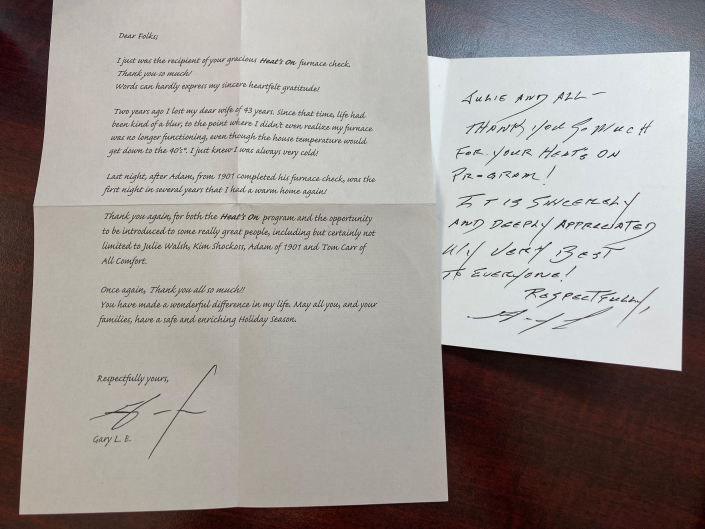 Dear Folks;
I just was the recipient of your gracious Heat's On furnace check.
Thank you so much!
Words can hardly express my sincere heartfelt gratitude!
Two years ago I lost my dear wife of 43 years. Since that time, life had
been kind of a blur, to the point where I didn't even realize my furnace
was no longer functioning, even though the house temperature would
get down to the 40's°. I just knew I was always very cold!
Last night, after Adam, from 1901 completed his furnace check, was the
first night in several years that I had a warm home again!
Thank you again, for both the Heat's On program and the opportunity
to be introduced to some really great people, including but certainly not
limited to Julie Walsh, Kim Shockoss, Adam of 1901 and Tom Carr of
All Comfort.
Once again, Thank you all so much!!
You have made a wonderful difference in my life. May all you, and your
families, have a safe and enriching Holiday Season.
Respectfully yours,
Gary L. E.
JULIE AND ALL –
THANK YOU SO MUCH
FOR YOUR HEAT'S ON
PROGRAM!
IT IS SINCERELY
AND DEEPLY APPRECIATED
MY VERY BEST
TO EVERYONE!
RESPECTFULLY,